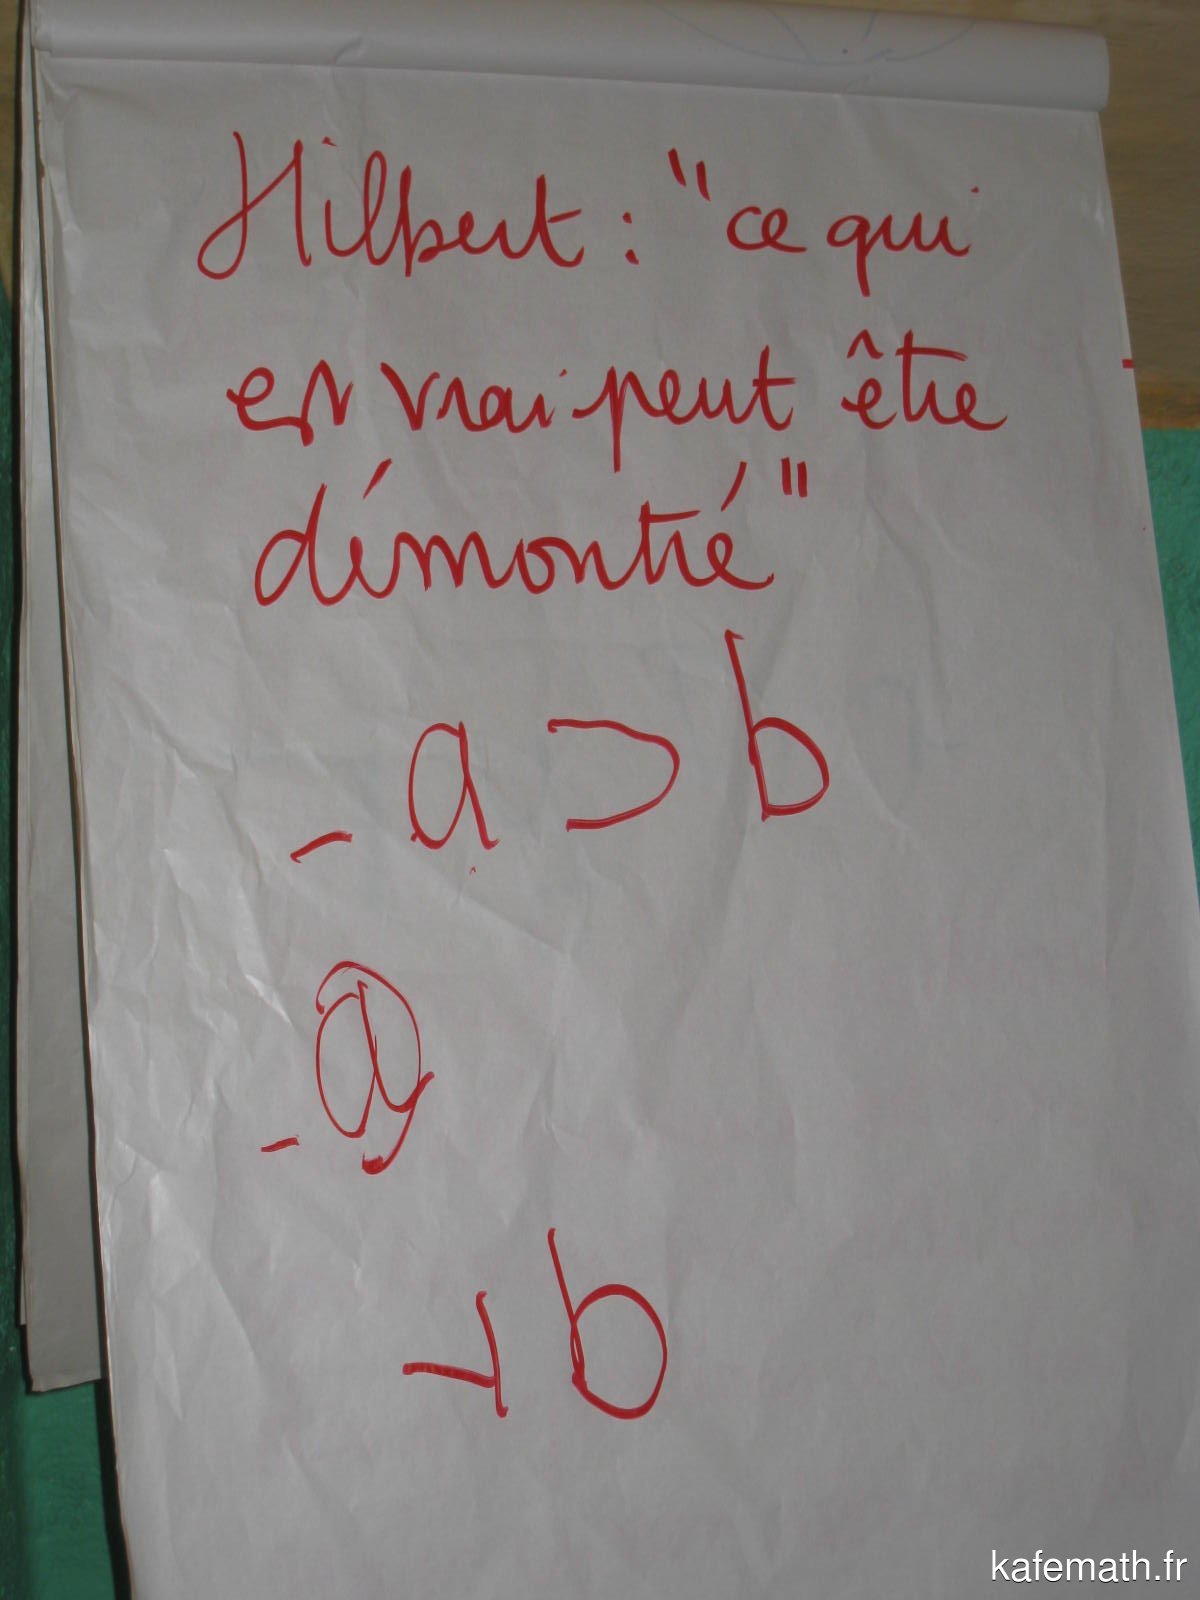 Hilbert : "ce qui
est vrai peut être
démontré"
- a ⊃ b
- a
⊣ b
kafemath.fr